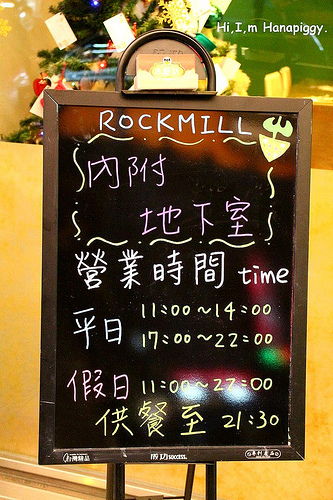 Hi,I,m Hanapiggy.
ROCKMILL
內附
地下室
營業時間 time
平日 11:00~14:00
17:00~22:00
假日 11:00~22:00
供餐至 21:30
成功 success.